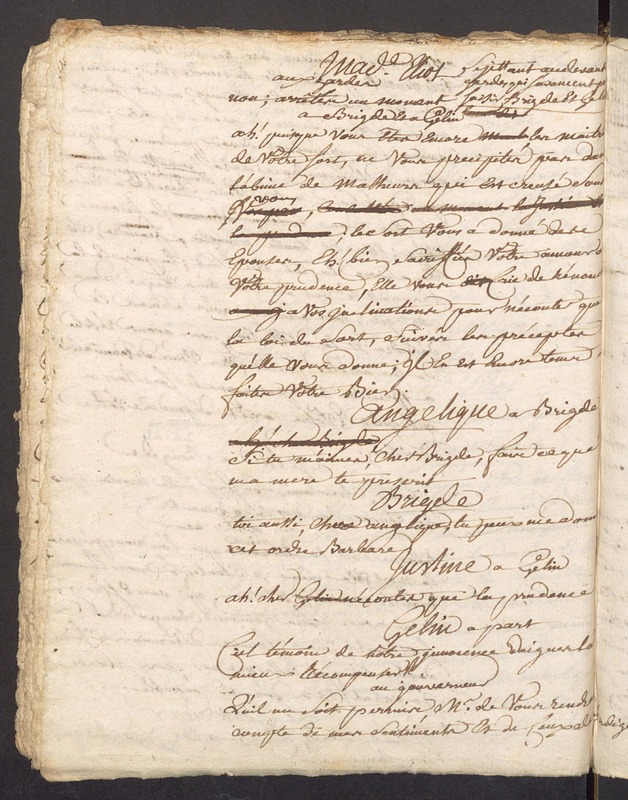 Mad.e Eliot se jettant au devant
aux gardes gardes qui savancent p
non; arretés un moment Brigde et Geli
a Brigde et a Gelin
ah! puisque Vous etes Encore les maitr
de Votre sort, ne Vous precipités pas dan
labime de Malheurs qui Est creusé sous
Vous
, le sort Vous a donné des
Epouses, Eh! bien sacriffiés Votre amour a
Votre prudence, Elle vous Crie de renon
a Vos inclinations pour nécouté que
la loi du Sort, suivés les préceptes
quelle vous donne; il En est Encore tems
faites Votre Bien.
Angelique a Brigde
Si tu m'aimes, cher Brigde, fais ce que
ma mere te prescrit
Brigde
toi aussi, chere angelique, tu peux me don
cet ordre Barbare
Justine a Gelin
ah! cher Gelin necoutes que la prudence
Gelin a part
Ciel témoin de notre innocence daignes la
mieux Récompenser!
au gouverneur
Qu'il me soit permis Mr. de Vous rendre
compte de mes sentiments Et de Ceux de